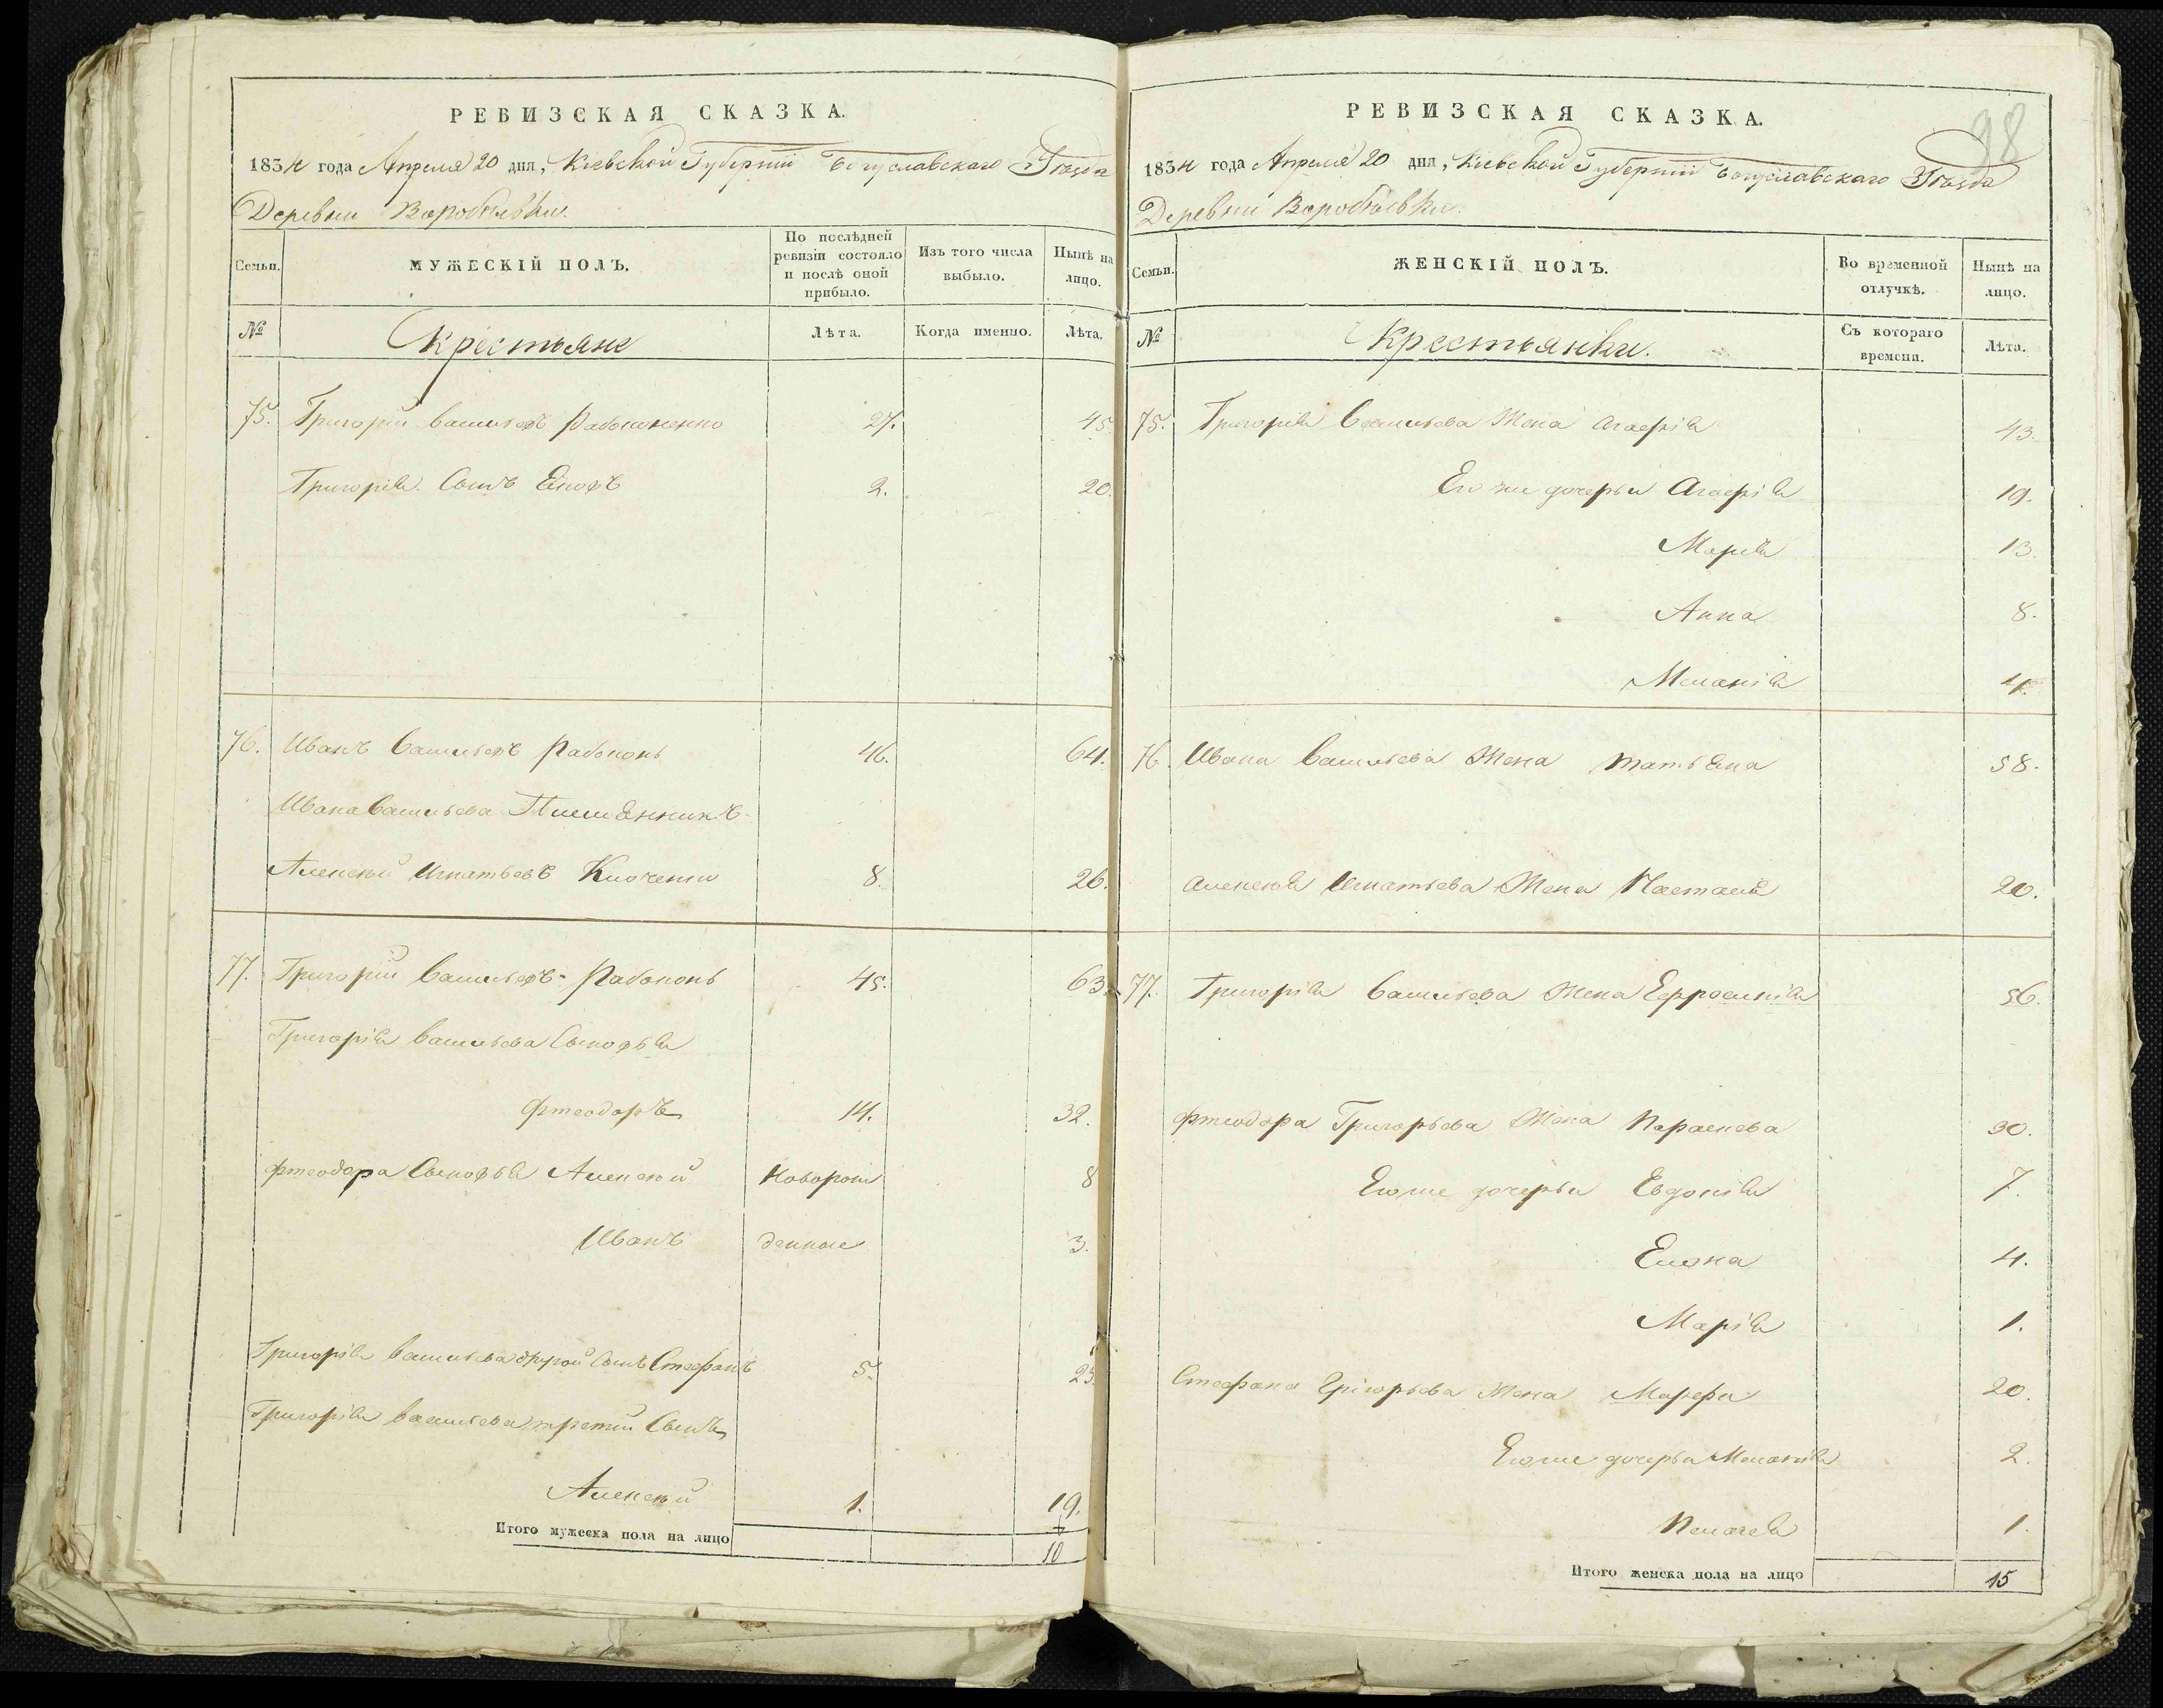 РЕВИЗСКАЯ СКАЗКА.
1834 года Апреля 20 дня, Киевской Губернии Богуславскаго Уезда
Деревни Воробиевки.
Семьи.
МУЖЕСКІЙ ПОЛЪ.
По послѣдней ревизіи состояло и послѣ оной прибыло.
Изъ того числа выбыло.
Нынѣ на лицо.
№
Крестьяне
Лѣта.
Когда именно.
Лѣта.
75. Григорий Васильевъ 27. 45
Григорія Сынъ 2. 20.
76. Иванъ Васильевъ Рабоконь 46. 64.
Ивана Васильева Племянникъ
Алексей Игнатьевъ 8. 26.
77. Григорий Васильевъ Рабоконь 45. 63.
Григорія Васильева Сыновья
Фтеодоръ 14. 32.
Фтеодора Сыновья Алексей Новорож 8
Иванъ денные 3.
Григорія Васильева другой Сынъ Стефанъ 5. 23.
Григорія Васильева третий Сынъ
Алексей 1. 19.
Итого мужеска пола на лицо 10
98
РЕВИЗСКАЯ СКАЗКА.
1834 года Апреля 20 дня, Киевской Губернии Богуславскаго Уезда
Деревни Воробиевки.
Семьи.
ЖЕНСКІЙ ПОЛЪ.
Во временной отлучкѣ.
Нынѣ на лицо.
№
Крестьянки.
Съ котораго времени.
Лѣта.
75. Григорія Васильева Жена Агафія 43.
Его же дочерьи Агафія 19.
Марія 13.
Анна 8.
Меланія 4.
76. Ивана Васильева Жена Татьяна 58.
Алексея Игнатьева Жена Настасія 20.
77. Григорія Васильева Жена Ефросинія 56.
Фтеодора Григорьева Жена Параскева 30.
Его же дочерьи Евдокія 7.
Елена 4.
Марія 1.
Стефана Григорьева Жена Марфа 20.
Его же дочерьи Меланія 2.
Пелагея 1.
Итого женска пола на лицо 15